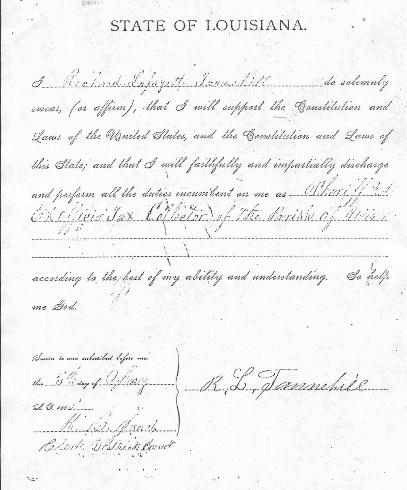 STATE OF LOUISIANA.
I Richard Lafayette Tannehill do solemnly
swear, (or affirm), that I will support the Constitution and
Laws of the United States, and the Constitution and Laws of
this State; and that I will faithfully and impartially discharge
and perform all the duties incumbent on me as Sheriff and
Ex Officio Tax Collector of the Parish of Winn
according to the best of my ability and understanding. So help
me God.
Sworn to and subscribed before me,
this 5th day of
A. D.
R. L. Tannehill
Clerk District Court